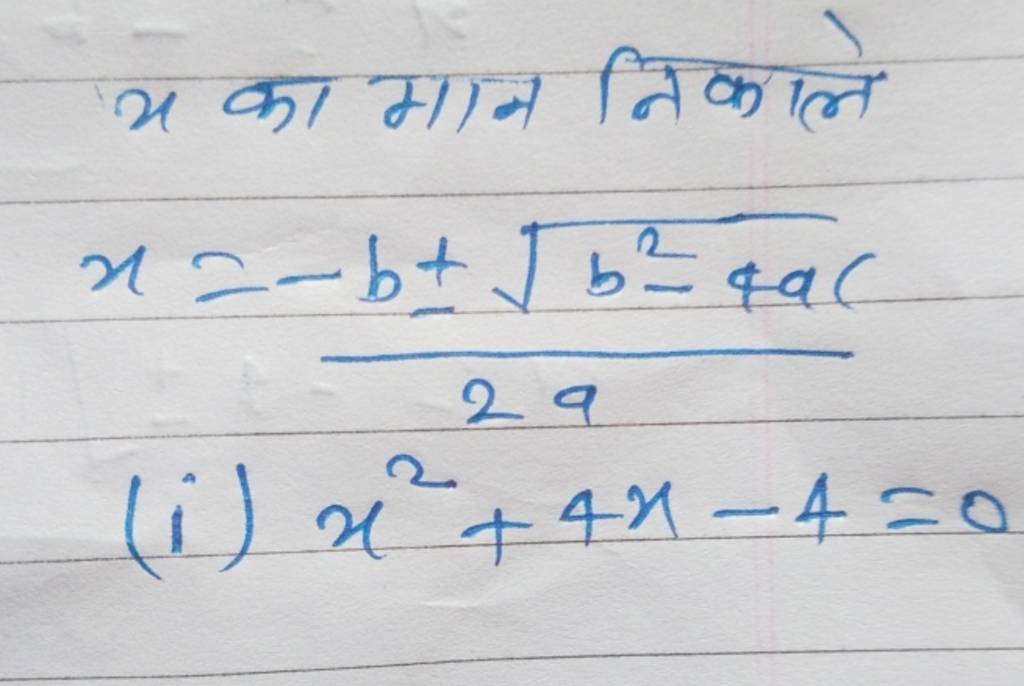 x का मान निकाले
x = -b ± √b² - 4ac
2a
(i) x² + 4x - 4 = 0